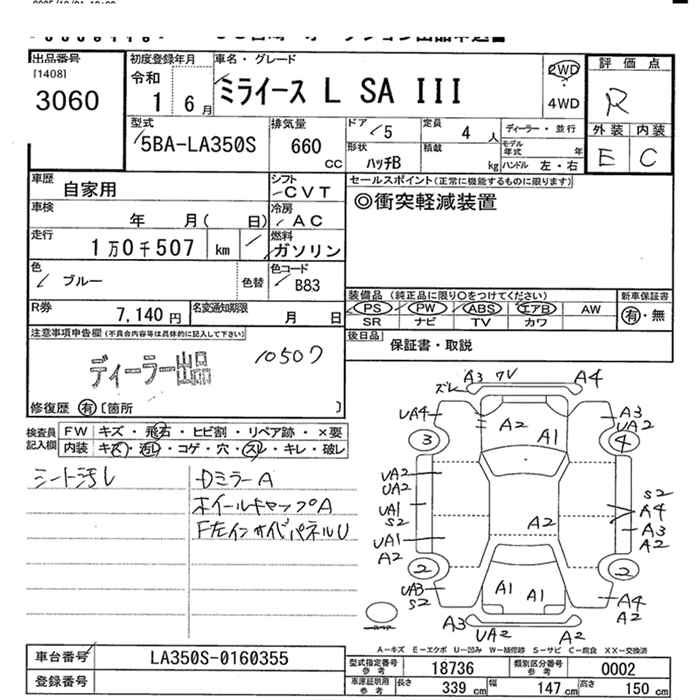 出品番号
[1408]
3060
初度登録年月
令和
1 6月
車名・グレード
ミライース L SA III
2WD
4WD
評価点
R
外装 内装
E C
型式
5BA-LA350S
排気量
660 cc
ドア 5
形状 ハッチB
定員 4 人
積載 kg
ディーラー・並行
モデル年式 年
ハンドル 左・右
車歴
自家用
シフト
CVT
車検 年 月( 日)
冷房
AC
走行
1万0千507 km
燃料
ガソリン
色
ブルー
色替
色コード
B83
R券
7,140円
名変通知期限
月 日
セールスポイント(正常に機能するものに限ります)
◎衝突軽減装置
装備品(純正品に限り○をつけてください)
PS PW ABS エアB AW
SR ナビ TV カワ
新車保証書
有・無
後日品
保証書・取説
注意事項申告欄(不具合内容等は具体的に記入して下さい)
ディーラー出品
10507
修復歴 有 [箇所 ]
検査員記入欄
FW キズ・飛石・ヒビ割・リペア跡・×要
内装 キズ・汚レ・コゲ・穴・スレ・キレ・破レ
シート汚レ
Dミラー A
ホイールキャップ A
F左インサイドパネル U
ズレ A3 ワV A4
UA4 A2 A1 A3
UA2
3 4
UA2
UA2
UA1
S2
UA1
A2
A2
S2
A4
A3
A2
2 2
UA3
S2
A1 A1
A4
A2
A3
UA2 A2
A-キズ E-エクボ U-凹み W-補修跡 S-サビ C-腐食 XX-交換済
車台番号
LA350S-0160355
登録番号
型式指定番号 参考
18736
類別区分番号 参考
0002
車庫証明用 参考
長さ 339 cm 幅 147 cm 高さ 150 cm